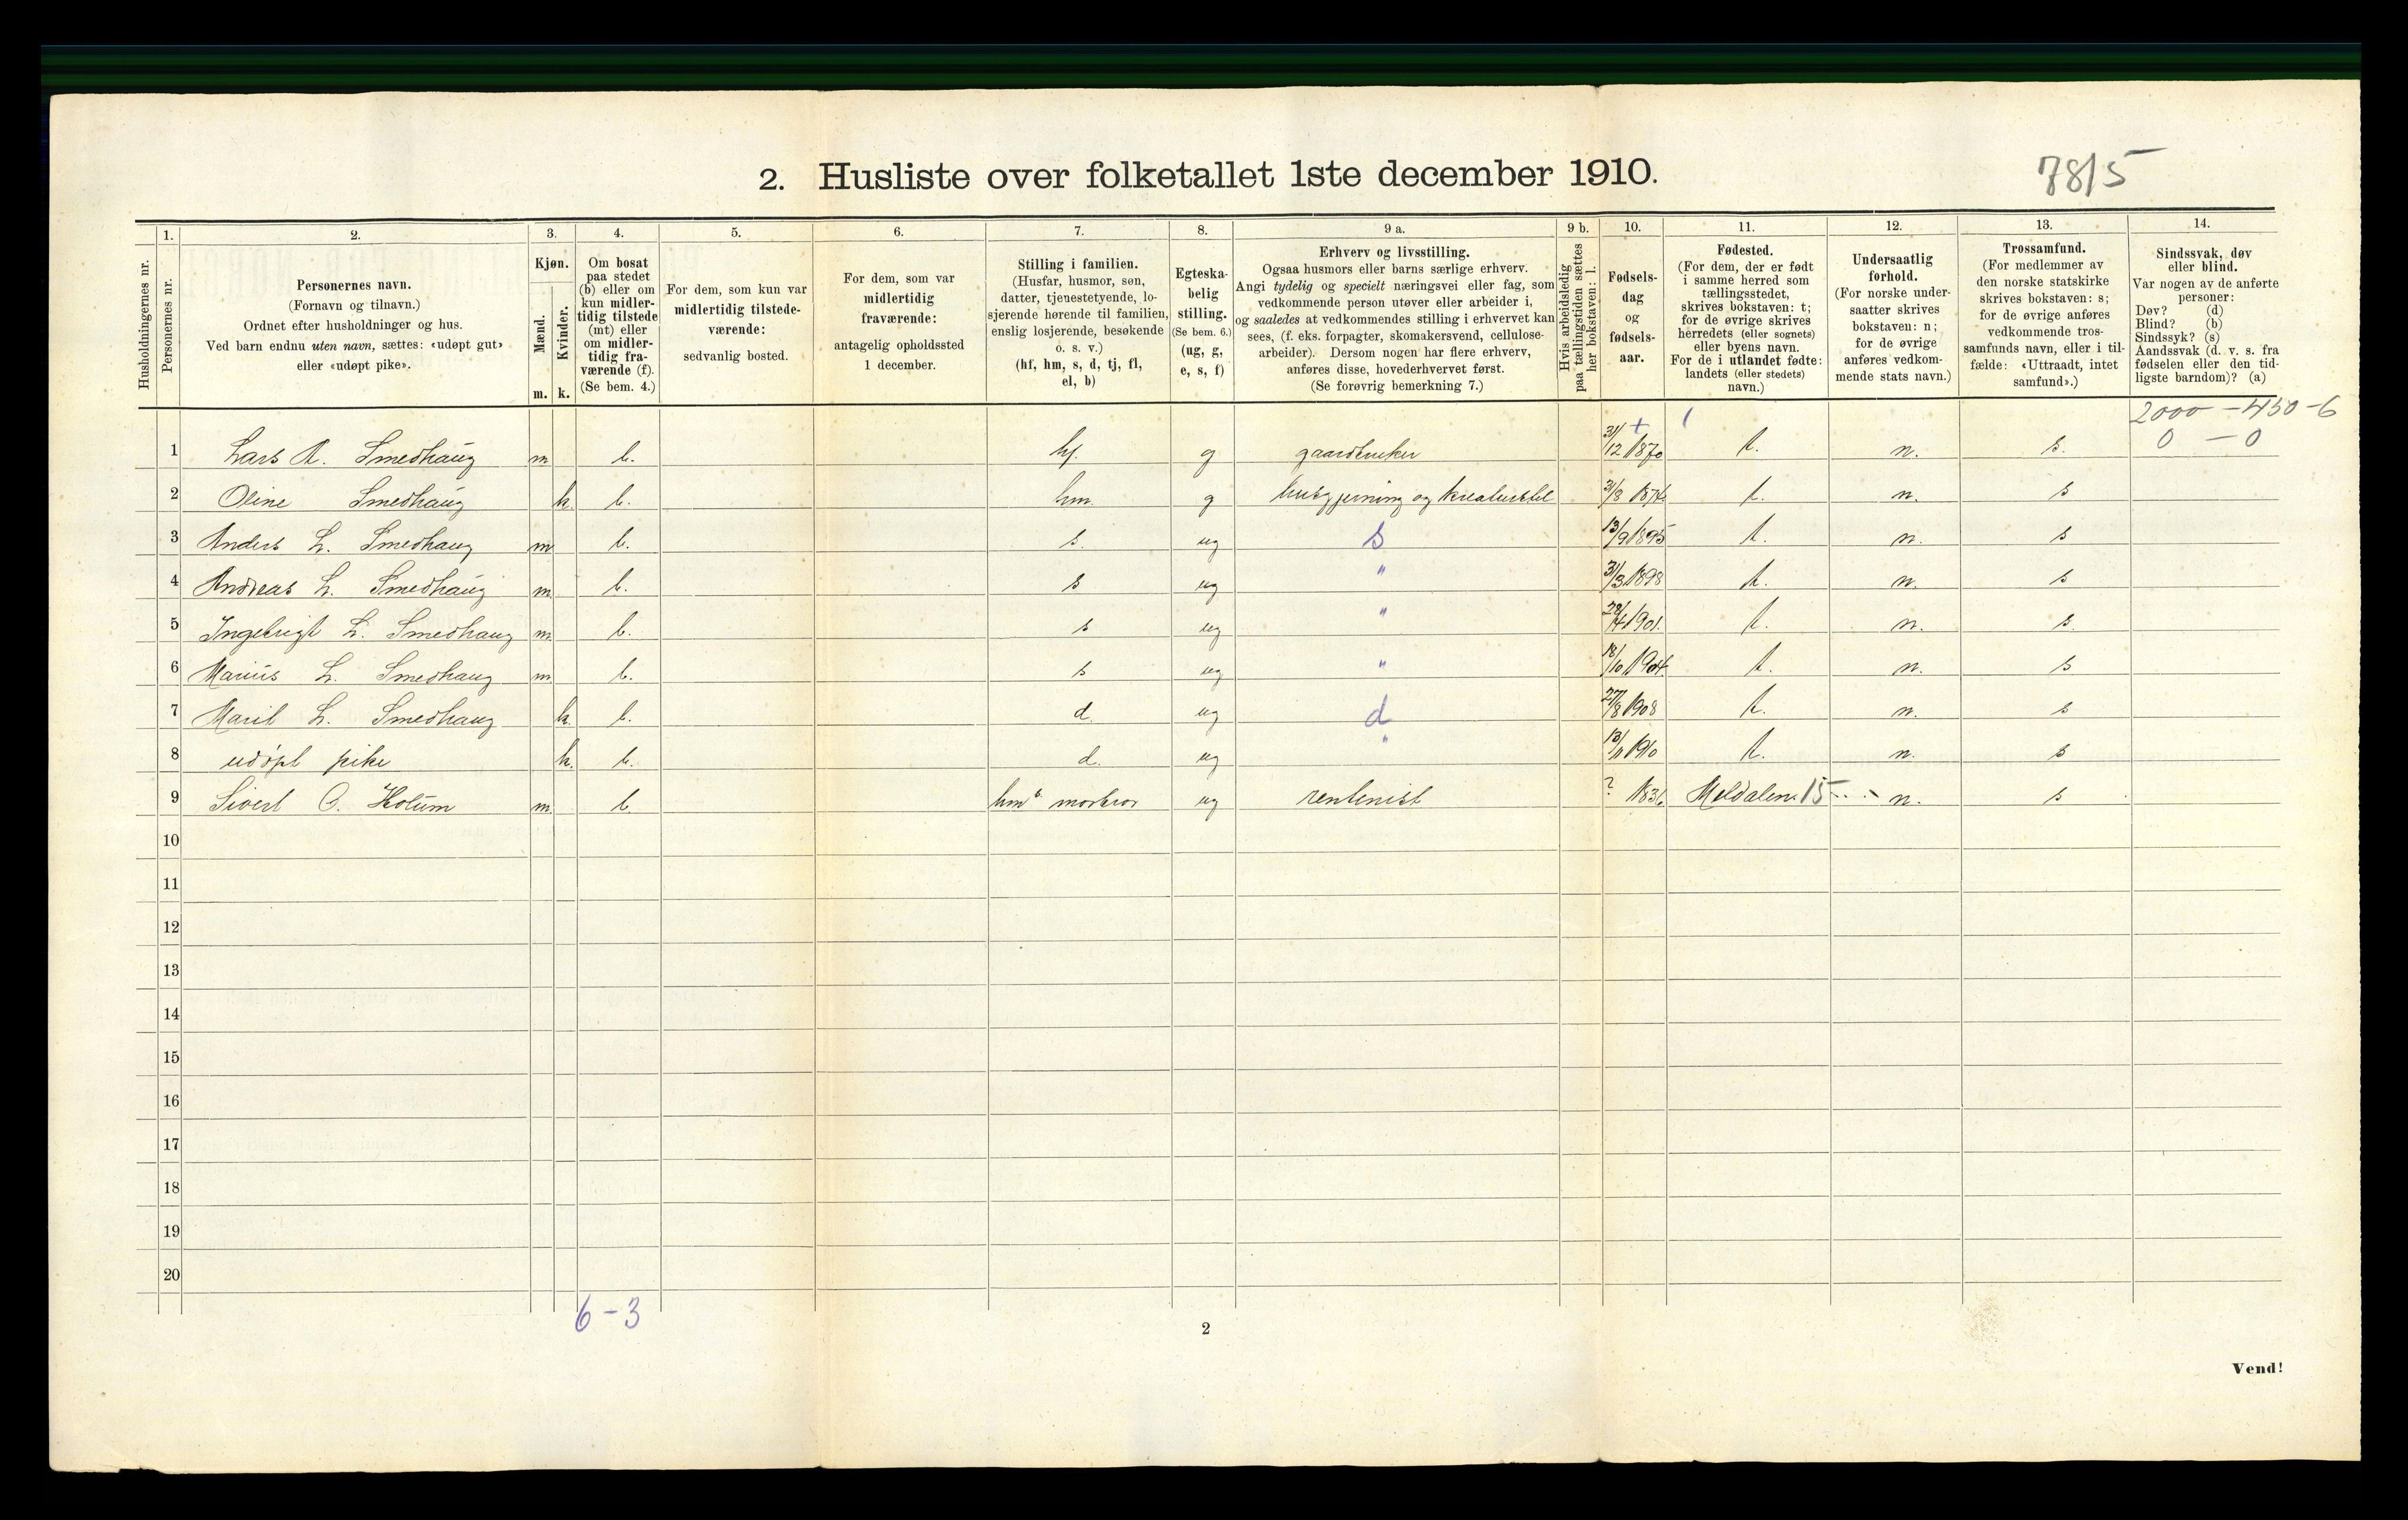 2. Husliste over folketallet 1ste december 1910.
78/5
Husholdningernes nr.
1.
Personernes nr.
2.
Personernes navn.
(Fornavn og tilnavn.)
Ordnet efter husholdninger og hus.
Ved barn endnu uten navn, sættes: «udøpt gut»
eller «udøpt pike».
3.
Kjøn.
Mænd.
Kvinder.
m. k.
4.
Om bosat
paa stedet
(b) eller om
kun midler-
tidig tilstede
(mt) eller
om midler-
tidig fra-
værende (f).
(Se bem. 4.)
5.
For dem, som kun var
midlertidig tilstede-
værende:
sedvanlig bosted.
6.
For dem, som var
midlertidig
fraværende:
antagelig opholdssted
1 december.
7.
Stilling i familien.
(Husfar, husmor, søn,
datter, tjenestetyende, lo-
sjerende hørende til familien,
enslig losjerende, besøkende
o. s. v.)
(hf, hm, s, d, tj, fl,
el, b)
8.
Egteska-
belig
stilling.
(Se bem. 6.)
(ug, g,
e, s, f)
9 a.
Erhverv og livsstilling.
Ogsaa husmors eller barns særlige erhverv.
Angi tydelig og specielt næringsvei eller fag, som
vedkommende person utøver eller arbeider i,
og saaledes at vedkommendes stilling i erhvervet kan
sees, (f. eks. forpagter, skomakersvend, cellulose-
arbeider). Dersom nogen har flere erhverv,
anføres disse, hovederhvervet først.
(Se forøvrig bemerkning 7.)
9 b.
Hvis arbeidsledig
paa tællingstiden sættes
her bokstaven: l.
10.
Fødsels-
dag
og
fødsels-
aar.
11.
Fødested.
(For dem, der er født
i samme herred som
tællingsstedet,
skrives bokstaven: t;
for de øvrige skrives
herredets (eller sognets)
eller byens navn.
For de i utlandet fødte:
landets (eller stedets)
navn.)
12.
Undersaatlig
forhold.
(For norske under-
saatter skrives
bokstaven: n;
for de øvrige
anføres vedkom-
mende stats navn.)
13.
Trossamfund.
(For medlemmer av
den norske statskirke
skrives bokstaven: s;
for de øvrige anføres
vedkommende tros-
samfunds navn, eller i til-
fælde: «Uttraadt, intet
samfund».)
14.
Sindssvak, døv
eller blind.
Var nogen av de anførte
personer:
Døv? (d)
Blind? (b)
Sindssyk? (s)
Aandssvak (d. v. s. fra
fødselen eller den tid-
ligste barndom)? (a)
2000 - 450 - 6
0 - 0
1 Lars A. Smedhaug m b. hf. g gaardbruker 31/12 1870 t. n. s.
2 Oline Smedhaug k. b. hm. g husgjerning og kreaturstel 31/8 1874 t. n. s
3 Anders L. Smedhaug m b. s. ug s 13/9 1895 t. n. s
4 Andreas L. Smedhaug m. b. s ug " 31/3 1898 t. n. s
5 Ingebrigt L. Smedhaug m. b. s ug " 28/4 1901. t. n. s.
6 Marius L. Smedhaug m b. s ug " 18/10 1904. t. n. s
7 Marit L. Smedhaug k. b. d. ug d 27/8 1908 t. n. s
8 udøpt pike k. b. d. ug " 13/11 1910 t. n. s
9 Sivert O. Holum m. b hms morbror ug rentenist ? Meldalen. 15 n. s
10
11
12
13
14
15
16
17
18
19
20
6 - 3
2
Vend!